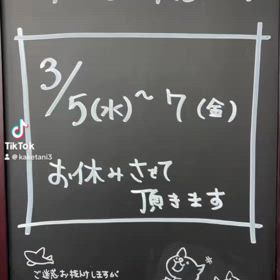 3/5(水)~7(金)
お休みさせて
頂きます
ご迷惑お掛けしますが
TikTok
@kaketani3